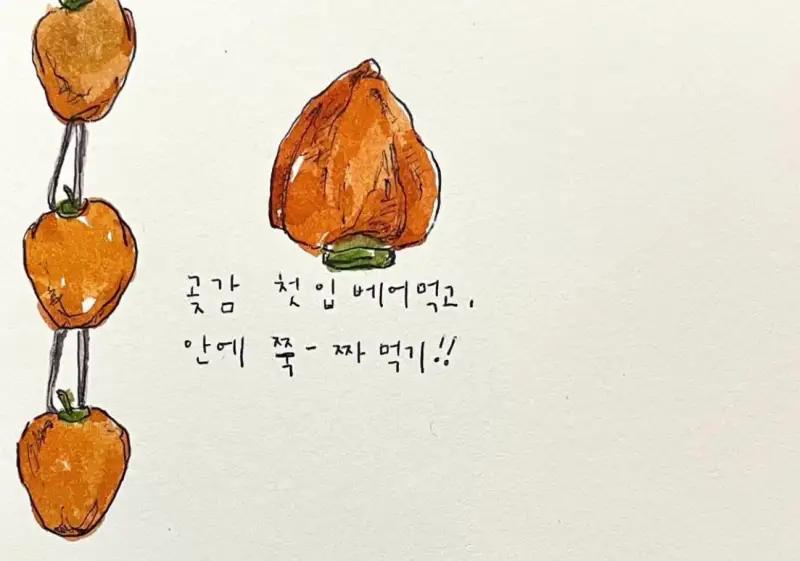 곶감 첫입 베어먹고,
안에 쭉- 짜 먹기!!